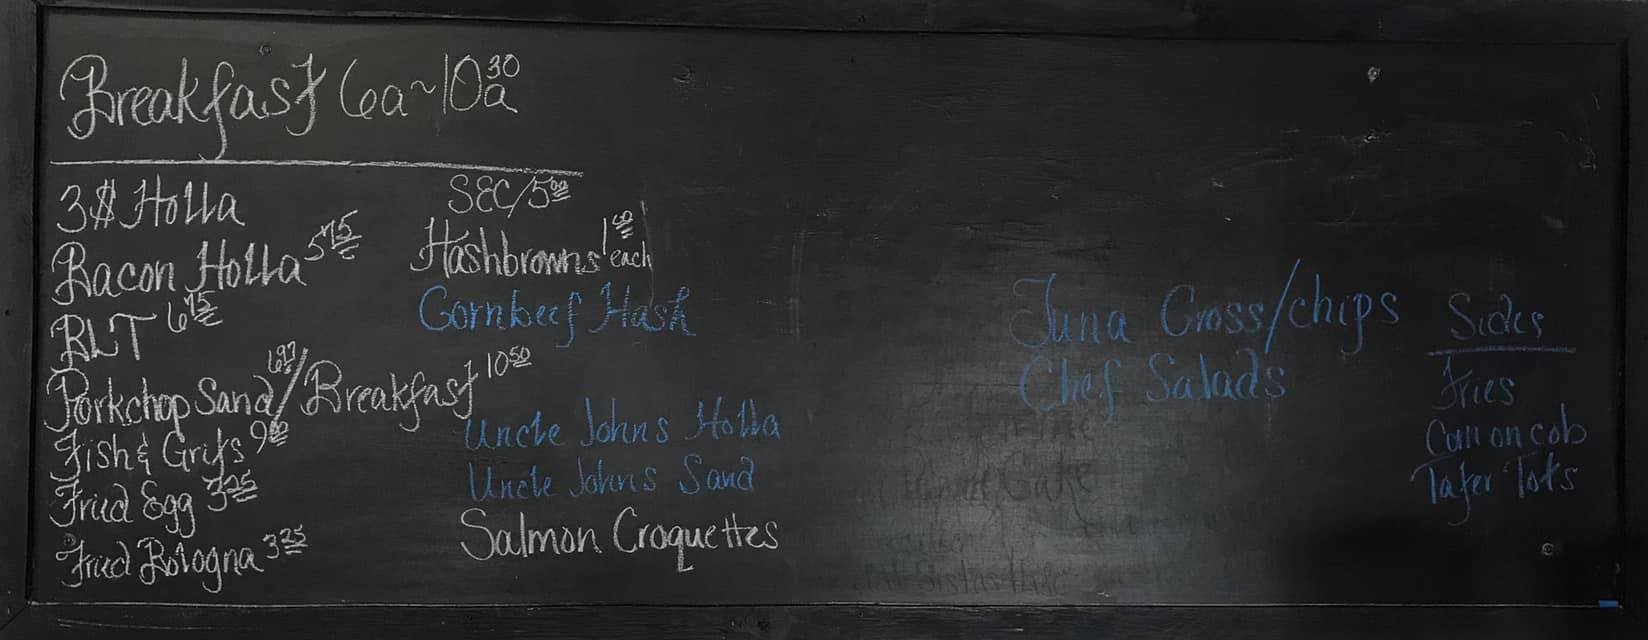 Breakfast 6a~10³⁰a
3$ Holla
Bacon Holla 5⁷⁵
BLT 6⁷⁵
Porkchop Sand 6⁹⁷/Breakfast 10⁵⁰
Fish & Grits 9⁰⁰
Fried Egg 3²⁵
Fried Bologna 3²⁵
SEC/5⁰⁰
Hashbrowns 1⁵⁰ each
Cornbeef Hash
Uncle Johns Holla
Uncle Johns Sand
Salmon Croquettes
Tuna Cross/chips
Chef Salads
Sides
Fries
Corn on cob
Tater Tots